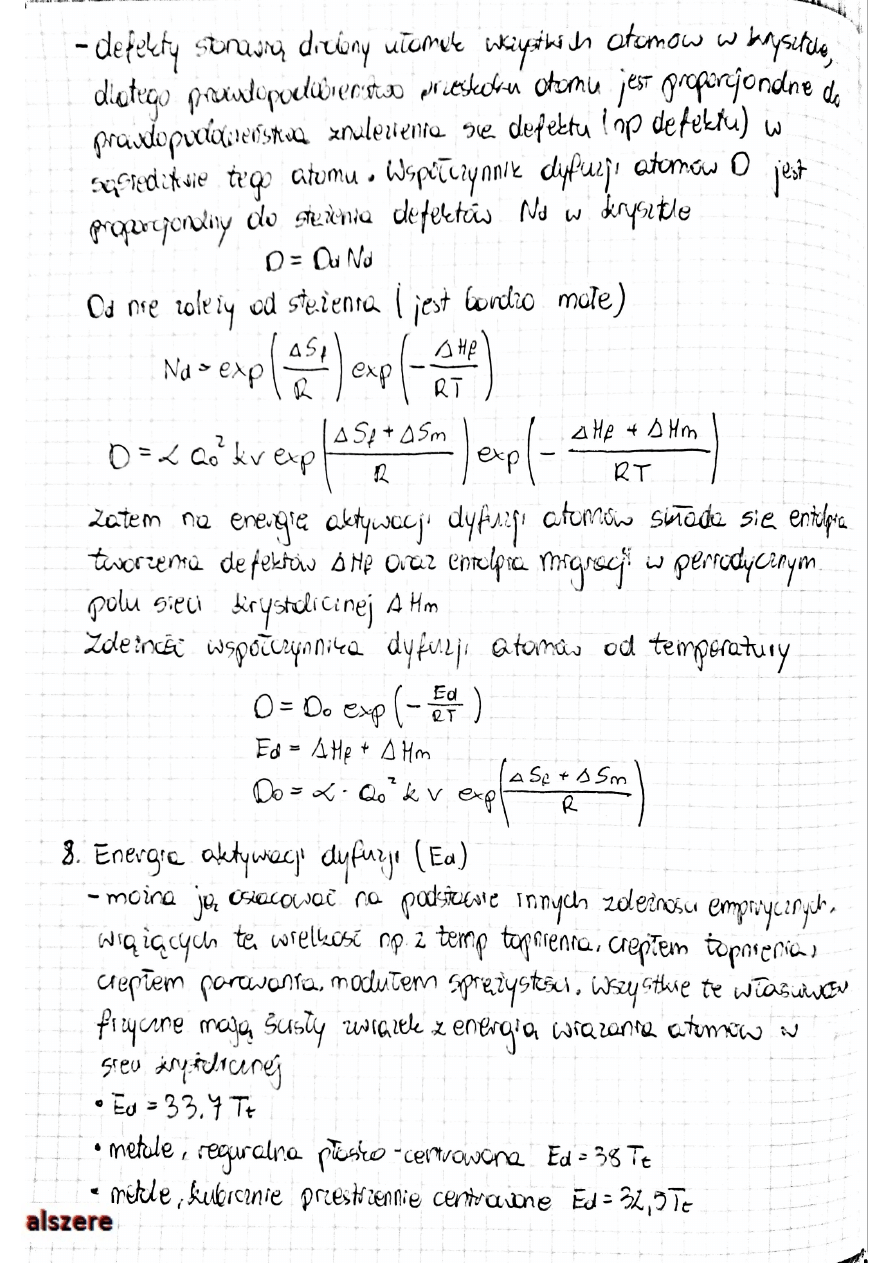 - defekty stanowią drobny ułamek wszystkich atomów w krysztale,
dlatego prawdopodobieństwo przeskoku atomu jest proporcjonalne do
prawdopodobieństwa znalezienia się defektu (np defektu) w
sąsiedztwie tego atomu. Współczynnik dyfuzji atomów D jest
proporcjonalny do stężenia defektów Nd w krysztale
D = Dd Nd
Dd nie zależy od stężenia (jest bardzo małe)
Nd ~ exp(ΔSf/R) exp(-ΔHf/RT)
D = α a₀² k v exp((ΔSf + ΔSm)/R) exp(-(ΔHf + ΔHm)/RT)
Zatem na energię aktywacji dyfuzji atomów składa się entalpia
tworzenia defektów ΔHf oraz entalpia migracji w periodycznym
polu sieci krystalicznej ΔHm
Zależność współczynnika dyfuzji atomów od temperatury
D = D₀ exp(-Ed/RT)
Ed = ΔHf + ΔHm
D₀ = α · a₀² k v exp((ΔSf + ΔSm)/R)
8. Energia aktywacji dyfuzji (Ed)
- można ją oszacować na podstawie innych zależności empirycznych,
wiążących tę wielkość np. z temp topnienia, ciepłem topnienia,
ciepłem parowania, modułem sprężystości. Wszystkie te właściwości
fizyczne mają ścisły związek z energią wiązania atomów w
sieci krystalicznej
• Ed = 33.7 Tt
• metale, reguralna płasko-centrowana Ed = 38 Tt
• metale, kubicznie przestrzennie centrowane Ed = 32,5 Tt
alszere